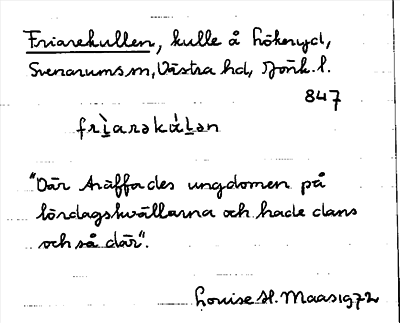 Friarekullen, kulle å Hökeryd,
Svenarums sn, Västra hd, Jönk. l.
847
frìarəkúḷən
"Där träffades ungdomen på
lördagskvällarna och hade dans
och så där".
Louise H. Maas 1972